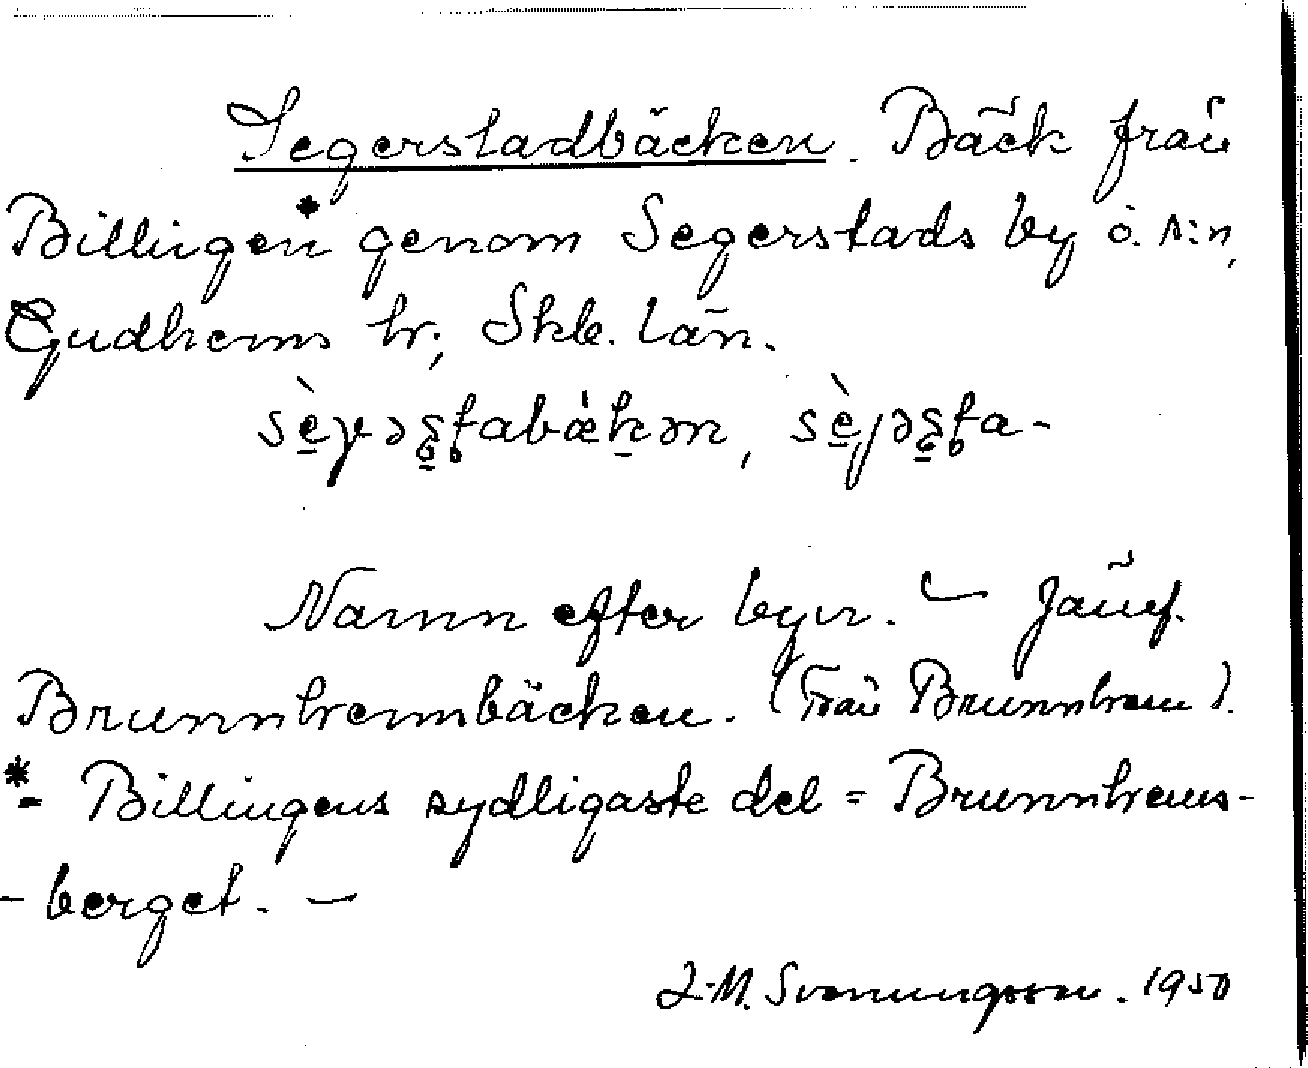 Segerstadbäcken. Bäck från
Billingen* genom Segerstads by o. s:n,
Gudhems hr, Skb. län.
sè̱γəş̱ţabæ̀ḵən, sè̱ȷəş̱ţa-
Namn efter byn. — Jämf.
Brunnhembäcken. (från Brunnhem).
*= Billingens sydligaste del = Brunnhems-
-berget. —
J-M. Svenungsson. 1950